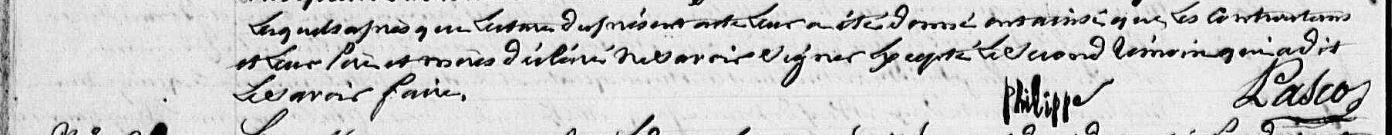 Lesquels après que lecture du présent acte leur a été donné ont ainsi que les Contractans
et leur Père et mères déclaré ne savoir signer Excepté le second témoin qui a dit
le savoir faire.
Philippe Pasco